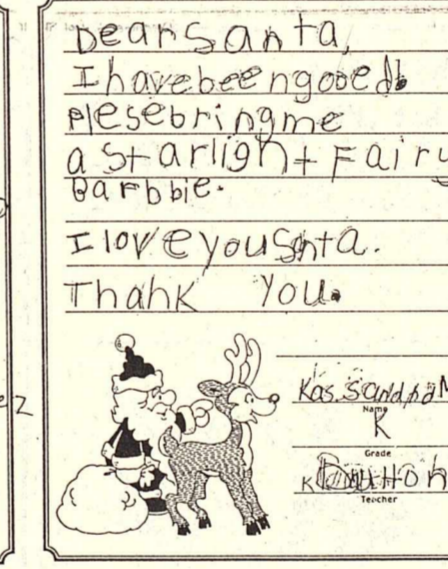 Dear Santa,
I have been gooed
Plese bring me
a Starlight Fairy
Barbbie.
I love you Santa.
Thank You.
Name
K
Grade
Teacher